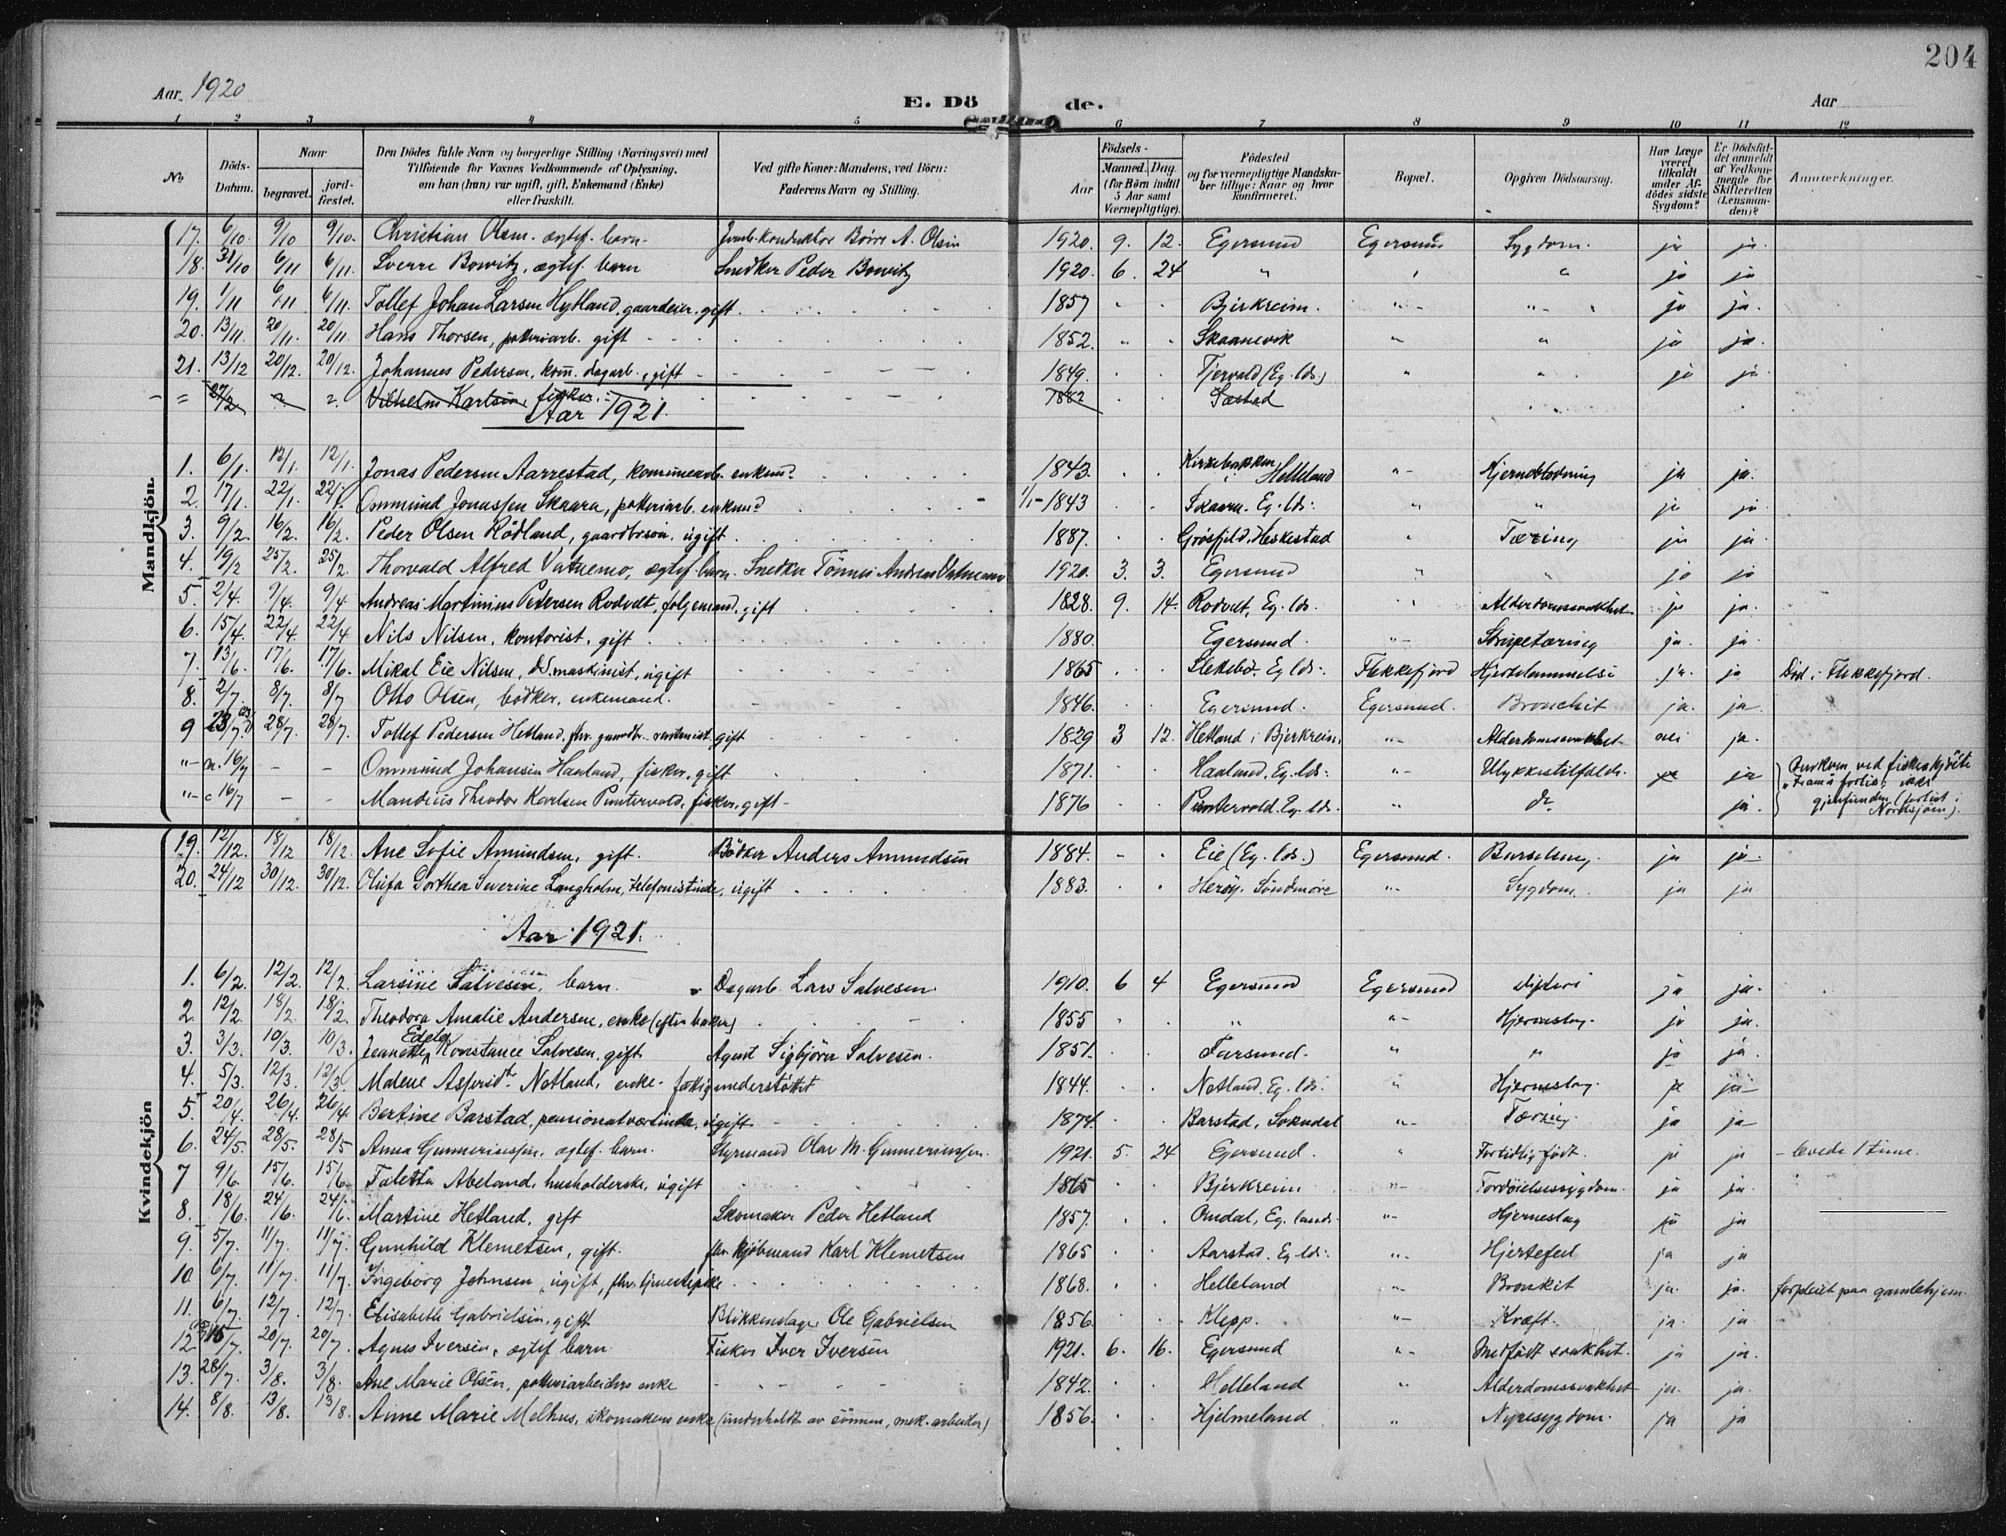 204
Aar 1920 E. Dö de. Aar
1 2 3 4 5 6 7 8 9 10 11 12
No Döds-Datum. Naar begravet. jord-fæstet. Den Dödes fulde Navn og borgerlige Stilling (Næringsvei) med Tilföiende for Voxnes Vedkommende af Oplysning, om han (hun) var ugift, gift, Enkemand (Enke) eller fraskilt. Ved gifte Koner: Mandens, ved Börn: Faderens Navn og Stilling. Födsels- Aar Maaned. Dag. (for Börn indtil 5 Aar samt Værnepligtige). Födested og for værnepligtige Mandskaber tillige: Naar og hvor konfirmeret. Bopæl. Opgiven Dödsaarsag. Har Læge været tilkaldt under Afdödes sidste Sygdom? Er Dödsfaldet anmeldt af Vedkommende for Skifteretten (Lensmanden)? Anmærkninger.
Mandkjön.
17. 6/10 9/10 9/10. Christian Olsen. ægtef. barn. Jernb. konduktør Børre A. Olsen 1920. 9. 12. Egersund Egersund Sygdom. ja ja.
18. 31/10 6/11 6/11. Sverre Bowitz, ægtef. barn Snedker Peder Bowitz 1920. 6. 24 " " " ja ja
19. 1/11 6/11 6/11. Tollef Johan Larsen Hytland, gaardeier, gift 1857 Bjerkreim. " " ja ja.
20. 13/11 20/11. 20/11. Hans Thorsen, potteriarb. gift 1852. Skaanevik " " ja ja
21. 13/12 20/12. 20/12. Johannes Pedersen, kom. dagarb., gift 1849. Tjervald (Eg. lds.) " " ja ja
= 27/2 Vilhelm Karlsen, fisker. 1882 Sæstad
Aar 1921.
1. 6/1. 12/1. 12/1. Jonas Pedersen Aarrestad, kommunearb. enkem. 1843. Kirkebakken, Helleland " Hjerneblødning ja ja.
2. 17/1. 22/1. 22/1. Ommund Jonassen Skaara, potteriarb. enkem. 1/1-1843 Skaara. Eg. lds. " " ja ja
3. 9/2. 16/2. 16/2. Peder Olsen Rödland, gaardbr. søn, ugift 1887. Grøsfjeld, Heskestad " Tæring ja ja
4. 19/2 25/2. 25/2. Thorvald Alfred Vatnemo, ægtef. barn. Snedker Tönnes Andreas Vatnemo 1920. 3. 3. Egersund " " ja ja
5. 2/4. 9/4. 9/4. Andreas Martinius Petersen Rodvelt, følgemand, gift 1828. 9. 14. Rodvelt, Eg. lds. " Alderdomssvakhet ja ja.
6. 15/4. 22/4. 22/4 Nils Nilsen, kontorist, gift 1880. Egersund. " Strupetæring ja. ja
7. 13/6 17/6. 17/6. Mikal Eie Nilsen, DS. maskinist, ugift 1865 Slettebø Eg lds. Flekkefjord Hjertelammelse ja. ja Död i Flekkefjord.
8. 2/7 8/7. 8/7 Otto Olsen, bødker, enkemand. 1846. Egersund. Egersund. Bronchit ja. ja.
9 23/7. 28/7. 28/7. Tollef Pedersen Hetland, fhv. gaardbr. gift 1829 3 12. Hetland i Bjerkreim. " Alderdomssvakhet nei ja.
" 16/7 – – Ommund Johansen Haaland, fisker, gift 1871. Haaland. Eg. lds. " Ulykkestilfælde. ja Omkom ved fiskeskjöite
" 16/7 – – Mandius Theodor Karlsen Puntervold, fisker, gift 1876 Puntervold. Eg. lds. " do ja. forlis; ikke gjenfunden (forlist i Nordsjøen).
Kvindekjön
19. 12/12. 18/12 18/12. Ane Sofie Amundsen, gift. Bödker Anders Amundsen 1884. Eie (Eg. lds.) Egersund. Barselseng. ja ja
20. 24/12 30/12. 30/12. Olufa Dorthea Severine Langholm, telefonistinde, ugift 1883. Herøy. Söndmøre " Sygdom. ja ja
Aar 1921.
1. 6/2. 12/2. 12/2 Larsine Salvesen, barn. Dagarb. Lars Salvesen. 1910. 6 4 Egersund Egersund difteri ja ja.
2 12/2. 18/2. 18/2. Theodora Amalie Andersen, enke (efter baker) 1855 " " Hjerneslag. ja ja.
3. 3/3. 10/3. 10/3. Jeanette Edele Konstance Salvesen, gift Agent Sigbjörn Salvesen. 1851. Farsund. " " ja ja.
4. 5/3. 12/3. 12/3. Malene Asserid Netland, enke – fattigunderstöttet 1844. Netland. Eg. lds. " Hjerneslag. ja ja
5. 20/4. 26/4. 26/4 Bertine Barstad, pensionatværtinde, ugift 1874. Barstad, Sokndal " Tæring ja ja
6. 24/5. 28/5. 28/5 Anna Gunneriussen, ægtef. barn. Styrmand Olav M. Gunneriussen. 1921. 5. 24 Egersund. " Fortidlig født. ja ja – levede 1 time.
7 9/6. 15/6. 15/6. Taletta Abeland, husholderske, ugift 1865 Bjerkreim " Fordøielsessygdom. ja ja
8. 18/6. 24/6. 24/6. Martine Hetland, gift Skomaker Peder Hetland 1857. Omdal, Eg. lands. " Hjerneslag ja ja
9. 5/7. 11/7. 11/7. Gunhild Klemetsen, gift. fhv kjöbmand Karl Klemetsen 1865 Aarstad. Eg lds. " Hjertefeil ja ja
10. 6/7. 11/7. 11/7. Ingeborg Johnsen, ugift, fhv. tjenestepike 1868. Helleland " Bronkit ja. ja. forpleiet paa gamlehjem.
11. 6/7 12/7. 12/7. Elisabeth Gabrielsen, gift Blikkenslager Ole Gabrielsen 1856. Klepp. " Kræft. ja. ja
12 15/7. 20/7. 20/7. Agnes Iversen, ægtef barn. Fisker Iver Iversen 1921. 6. 16. Egersund " Medfödt svakhet. ja ja.
13. 28/7. 3/8. 3/8. Ane Marie Olsen, potteriarbeiders enke 1842. Helleland " Alderdomssvakhet ja. ja
14. 8/8. 13/8. 13/8. Anne Marie Melhus, skomakers enke (underholdt av sönnen, mek. arbeider) 1856. Hjelmeland " Nyresygdom. ja ja